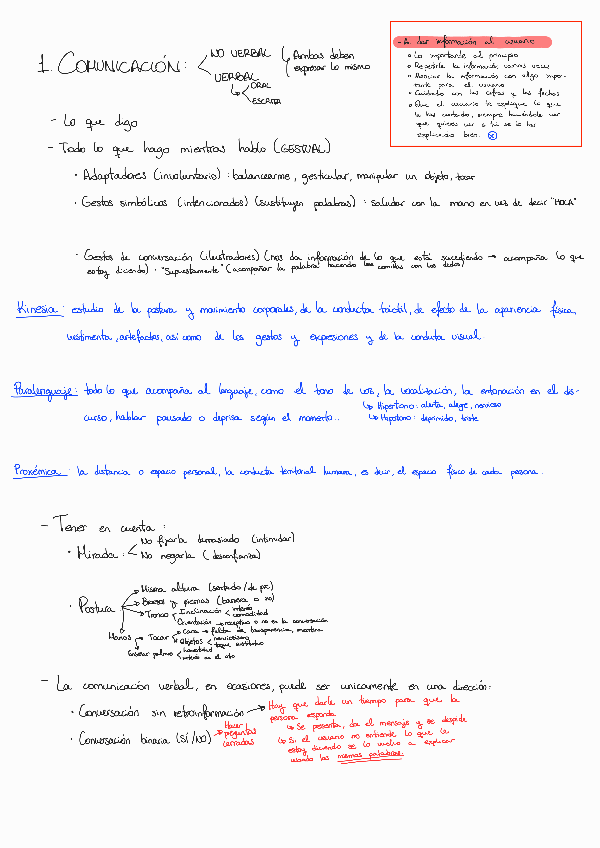 1. COMUNICACIÓN:
NO VERBAL
VERBAL
Ambas deben
expresar lo mismo
↳ ORAL
ESCRITA
- A dar información al usuario
• Lo importante al principio
• Repetirle la información varias veces
• Marcar la información con algo impor-
tante para el usuario
• Cuidado con las cifras y las fechas
• Que el usuario te explique lo que
le has contado, siempre haciéndole ver
que quieres ver si tú se lo has
explicado bien.
- Lo que digo
- Todo lo que hago mientras hablo (GESTUAL)
• Adaptadores (involuntario): balancearme, gesticular, manipular un objeto, tocar
• Gestos simbólicos (intencionados) (sustituyen palabras): saludar con la mano en vez de decir "HOLA"
• Gestos de conversación (ilustradores) (nos da información de lo que está sucediendo → acompaña lo que
estoy diciendo). "Supuestamente" (acompañar la palabra haciendo las comillas con los dedos)
Kinesia: estudio de la postura y movimiento corporales, de la conducta táctil, de efecto de la apariencia física,
vestimenta, artefactos, así como de los gestos y expresiones y de la conducta visual.
Paralenguaje: todo lo que acompaña al lenguaje, como el tono de voz, la vocalización, la entonación en el dis-
curso, hablar pausado o deprisa según el momento..
↳ Hipertono: alerta, alegre, nervioso
↳ Hipotono: deprimido, triste
Proxémica: la distancia o espacio personal, la conducta territorial humana, es decir, el espacio físico de cada persona.
- Tener en cuenta:
• Mirada:
No fijarla demasiado (intimidar)
No negarla (desconfianza)
• Postura
Misma altura (sentado/de pie)
Brazos y piernas (barrera o no)
Tronco
Inclinación
interés
comodidad
Orientación → receptivo o no en la conversación
Manos → Tocar
Cara → falta de transparencia, mentira
Objetos
nerviosismo
toque sustitutivo
Enseñar palmas
honestidad
interés en el otro
- La comunicación verbal, en ocasiones, puede ser unicamente en una dirección:
• Conversación sin retroinformación →
Hay que darle un tiempo para que la
persona responda
↳ Se presenta, da el mensaje y se despide
↳ Si el usuario no entiende lo que le
estoy diciendo se lo vuelvo a explicar
usando las mismas palabras.
• Conversación binaria (SÍ/NO) →
Hacer
preguntas
cerradas